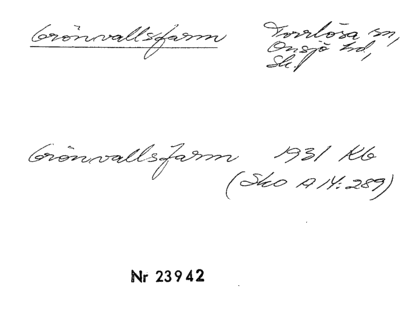 Grönvallsfarm Torrlösa sn,
Onsjö hd,
Sk.
Grönvallsfarm 1931 Kb
(Sko A 14:289)
Nr 23942